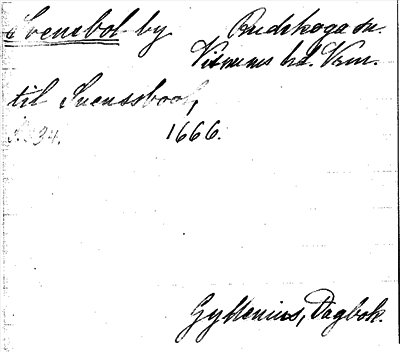 Svensbol by Rudskoga sn.
Visnums hd. Vrm.
til Svenssbooh,
s. 34. 1666.
Gyllenius, Dagbok.